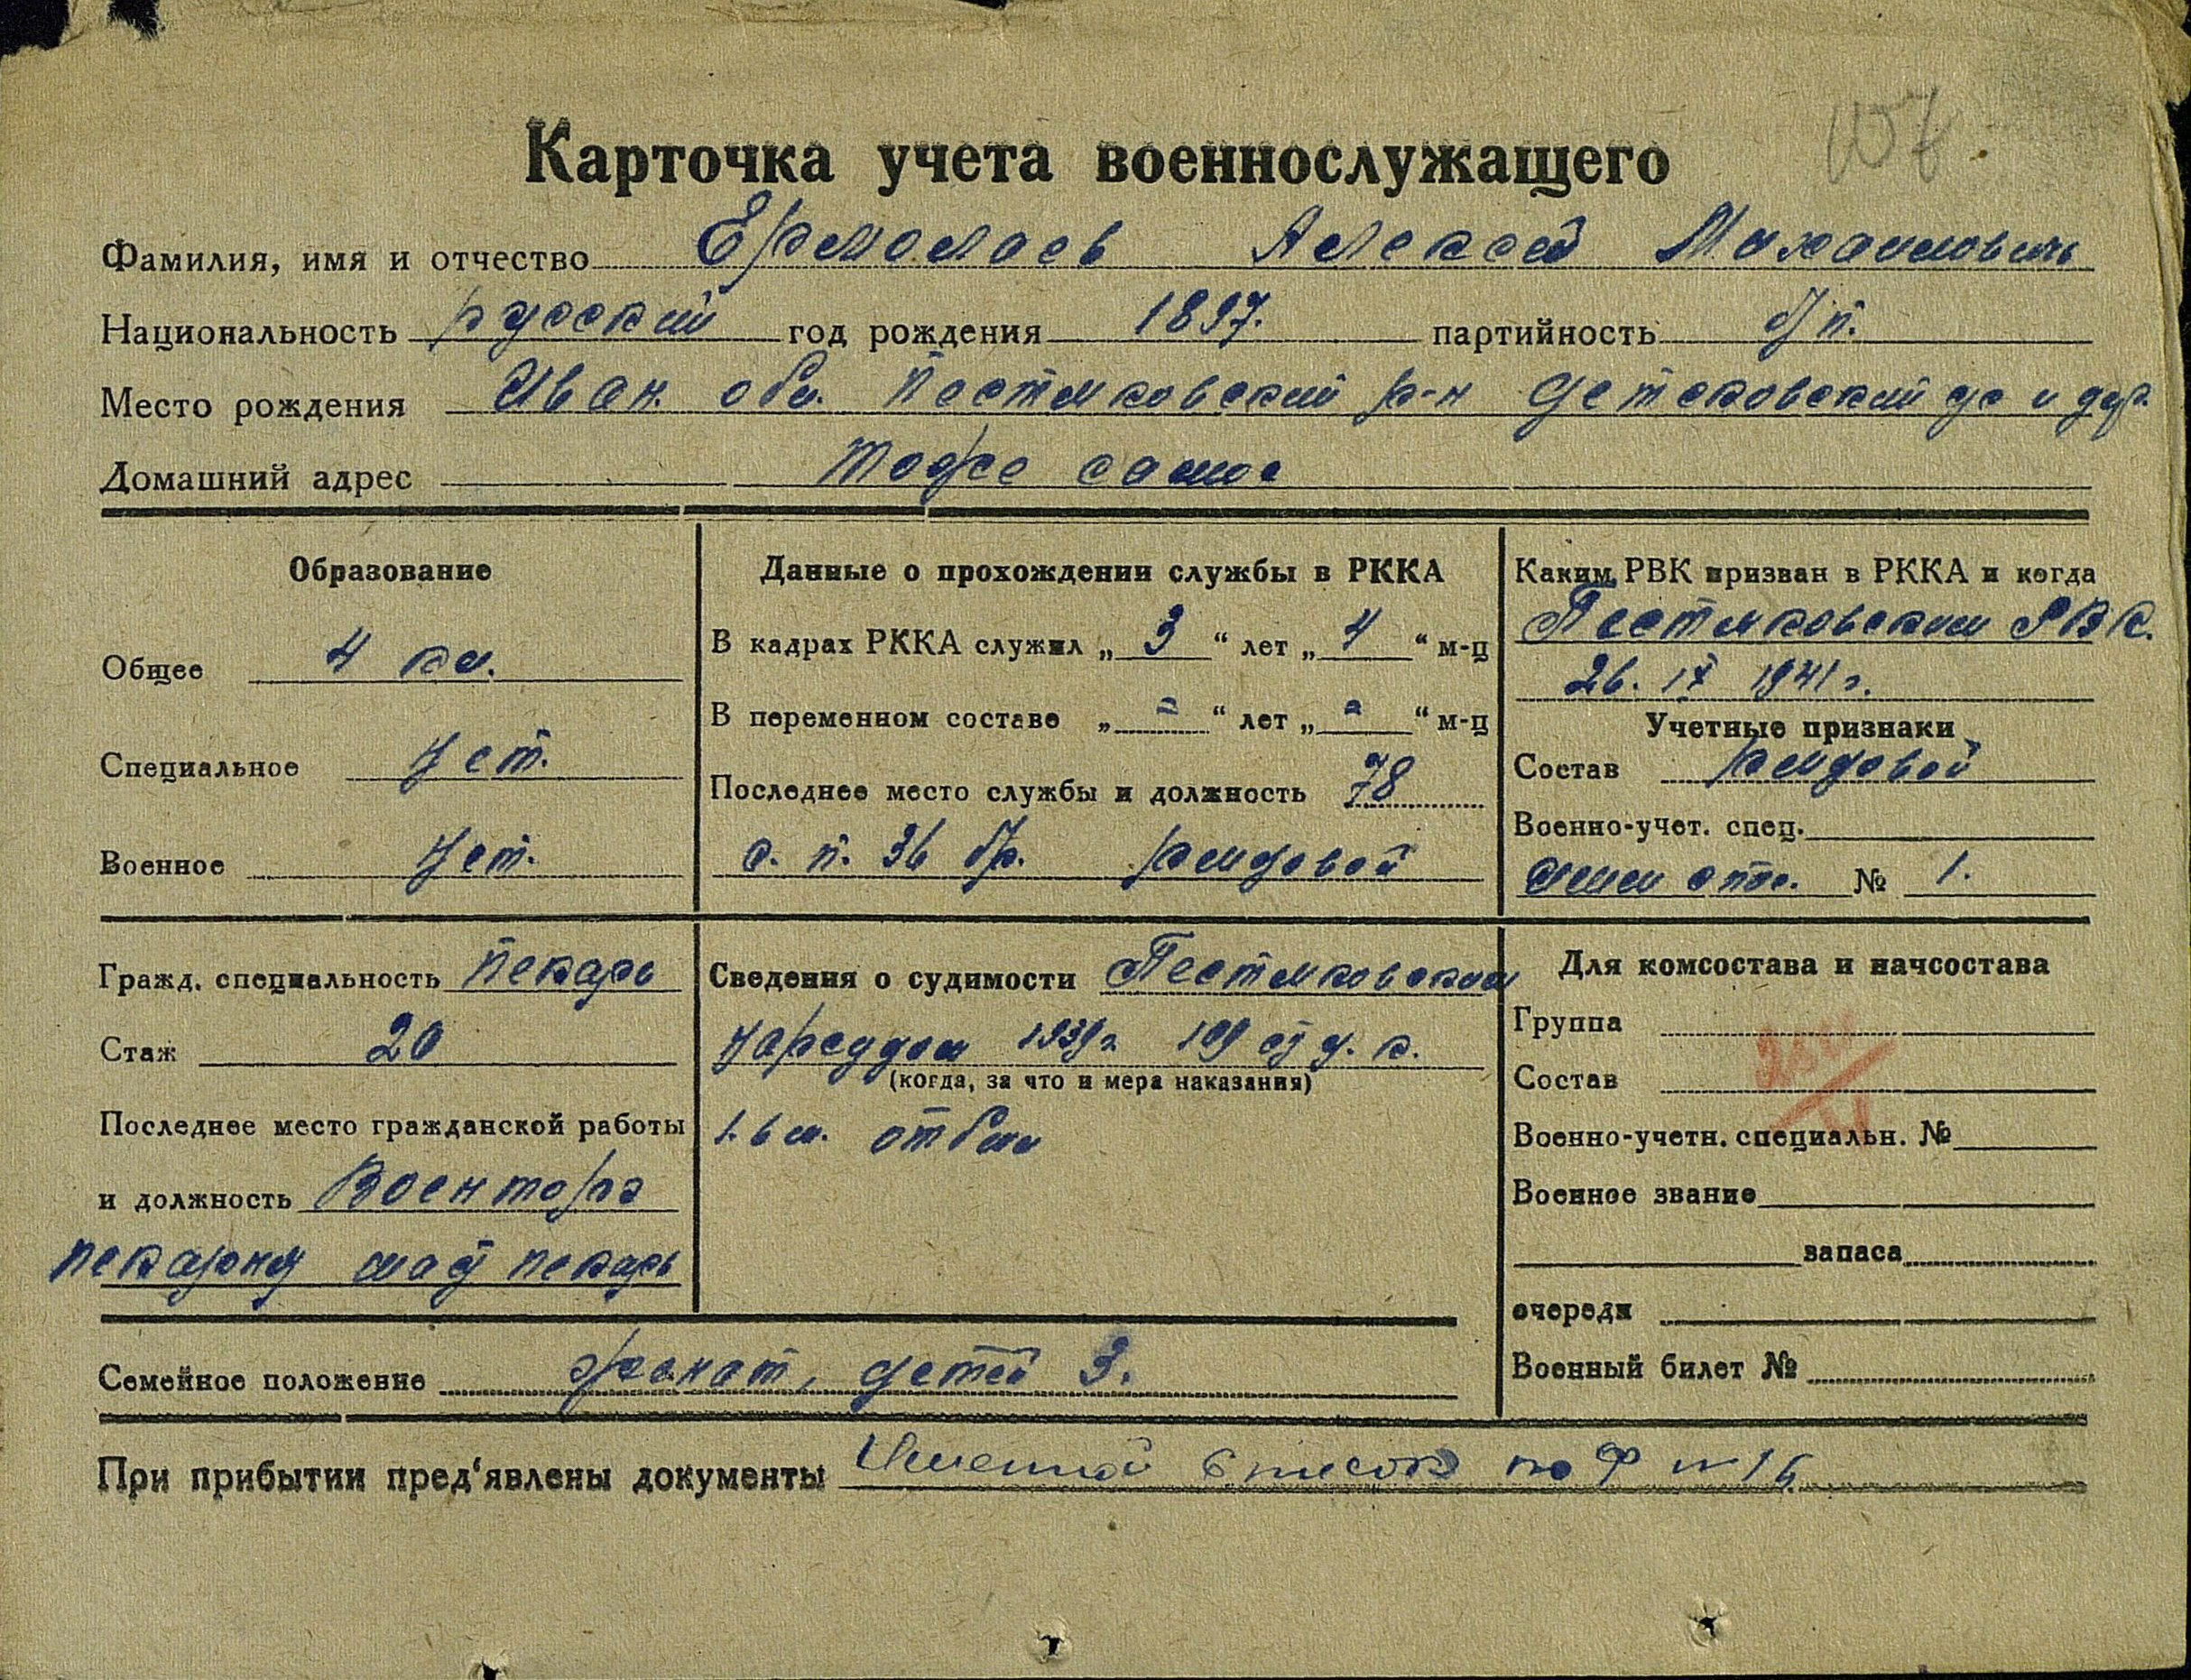 107
Карточка учета военнослужащего
Фамилия, имя и отчество Ермолаев Алексей Михаилович
Национальность русский год рождения 1897. партийность б/п.
Место рождения Иван. обл. Пестяковский р-н Детсковский с и дер.
Домашний адрес тоже самое
Образование
Общее 4 кл.
Специальное нет.
Военное нет.
Данные о прохождении службы в РККА
В кадрах РККА служил „ 3 “ лет „ 4 “ м-ц
В переменном составе „ - “ лет „ - “ м-ц
Последнее место службы и должность 78
с. п. 36 бр. рядовой
Каким РВК призван в РККА и когда
Пестяковским РВК.
26. IX 1941 г.
Учетные признаки
Состав рядовой
Военно-учет. спец.
№ 1.
Гражд. специальность пекарь
Стаж 20
Последнее место гражданской работы
и должность Военторг
пекарня пекарь
Сведения о судимости Пестяковским
нарсудом 1939г. 109 ст у. к.
(когда, за что и мера наказания)
1. 6 м. отбыл
Для комсостава и начсостава
Группа
Состав
Военно-учетн. специальн. №
Военное звание
запаса
очереди
Военный билет №
Семейное положение женат, детей 3.
При прибытии пред‘явлены документы Именной список по Ф №